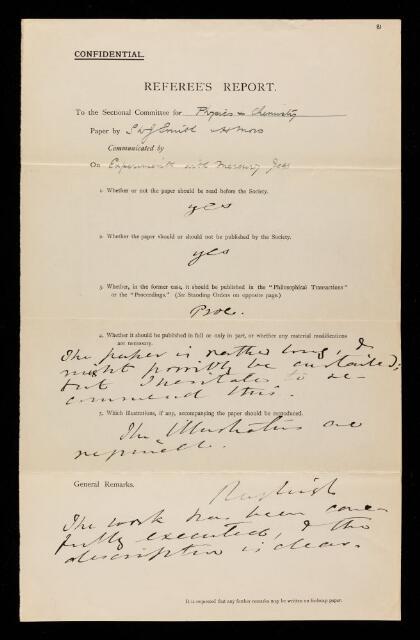 CONFIDENTIAL.
REFEREE'S REPORT.
To the Sectional Committee for Physics & Chemistry
Paper by S W J Smith & H Moss
Communicated by
On Experiments with Mercury Jets
1. Whether or not the paper should be read before the Society.
yes
2. Whether the paper should or should not be published by the Society.
yes
3. Whether, in the former case, it should be published in the "Philosophical Transactions"
or the "Proceedings." (See Standing Orders on opposite page.)
Proc.
4. Whether it should be published in full or only in part, or whether any material modifications
are necessary.
The paper is rather long, &
might possibly be curtailed;
but I hesitate to re-
commend this.
5. Which illustrations, if any, accompanying the paper should be reproduced.
The illustrations are
required.
General Remarks.
Rayleigh
The work has been care-
fully executed, & the
description is clear.
It is requested that any further remarks may be written on foolscap paper.